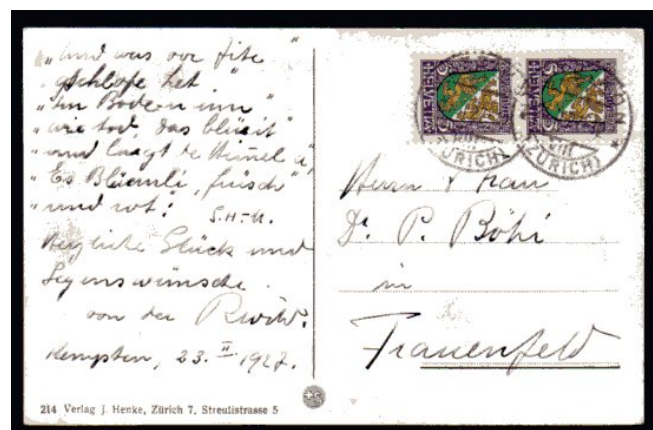 „und was vor Zite"
„gschlofe het"
„im Bode inn"
„wie tod, das blüeit"
„und lacht de Himel a"
„Es Blüemli, früsch"
„und rot!
S.H-M.
Herzliche Glück und
Segenswünsche
von der
Kempten, 23. II 1927.
214 Verlag J. Henke, Zürich 7, Streulistrasse 5
HELVETIA
5
HELVETIA
5
(ZÜRICH)
(ZÜRICH)
Herrn & Frau
Dr. P. Böhi
in
Frauenfeld